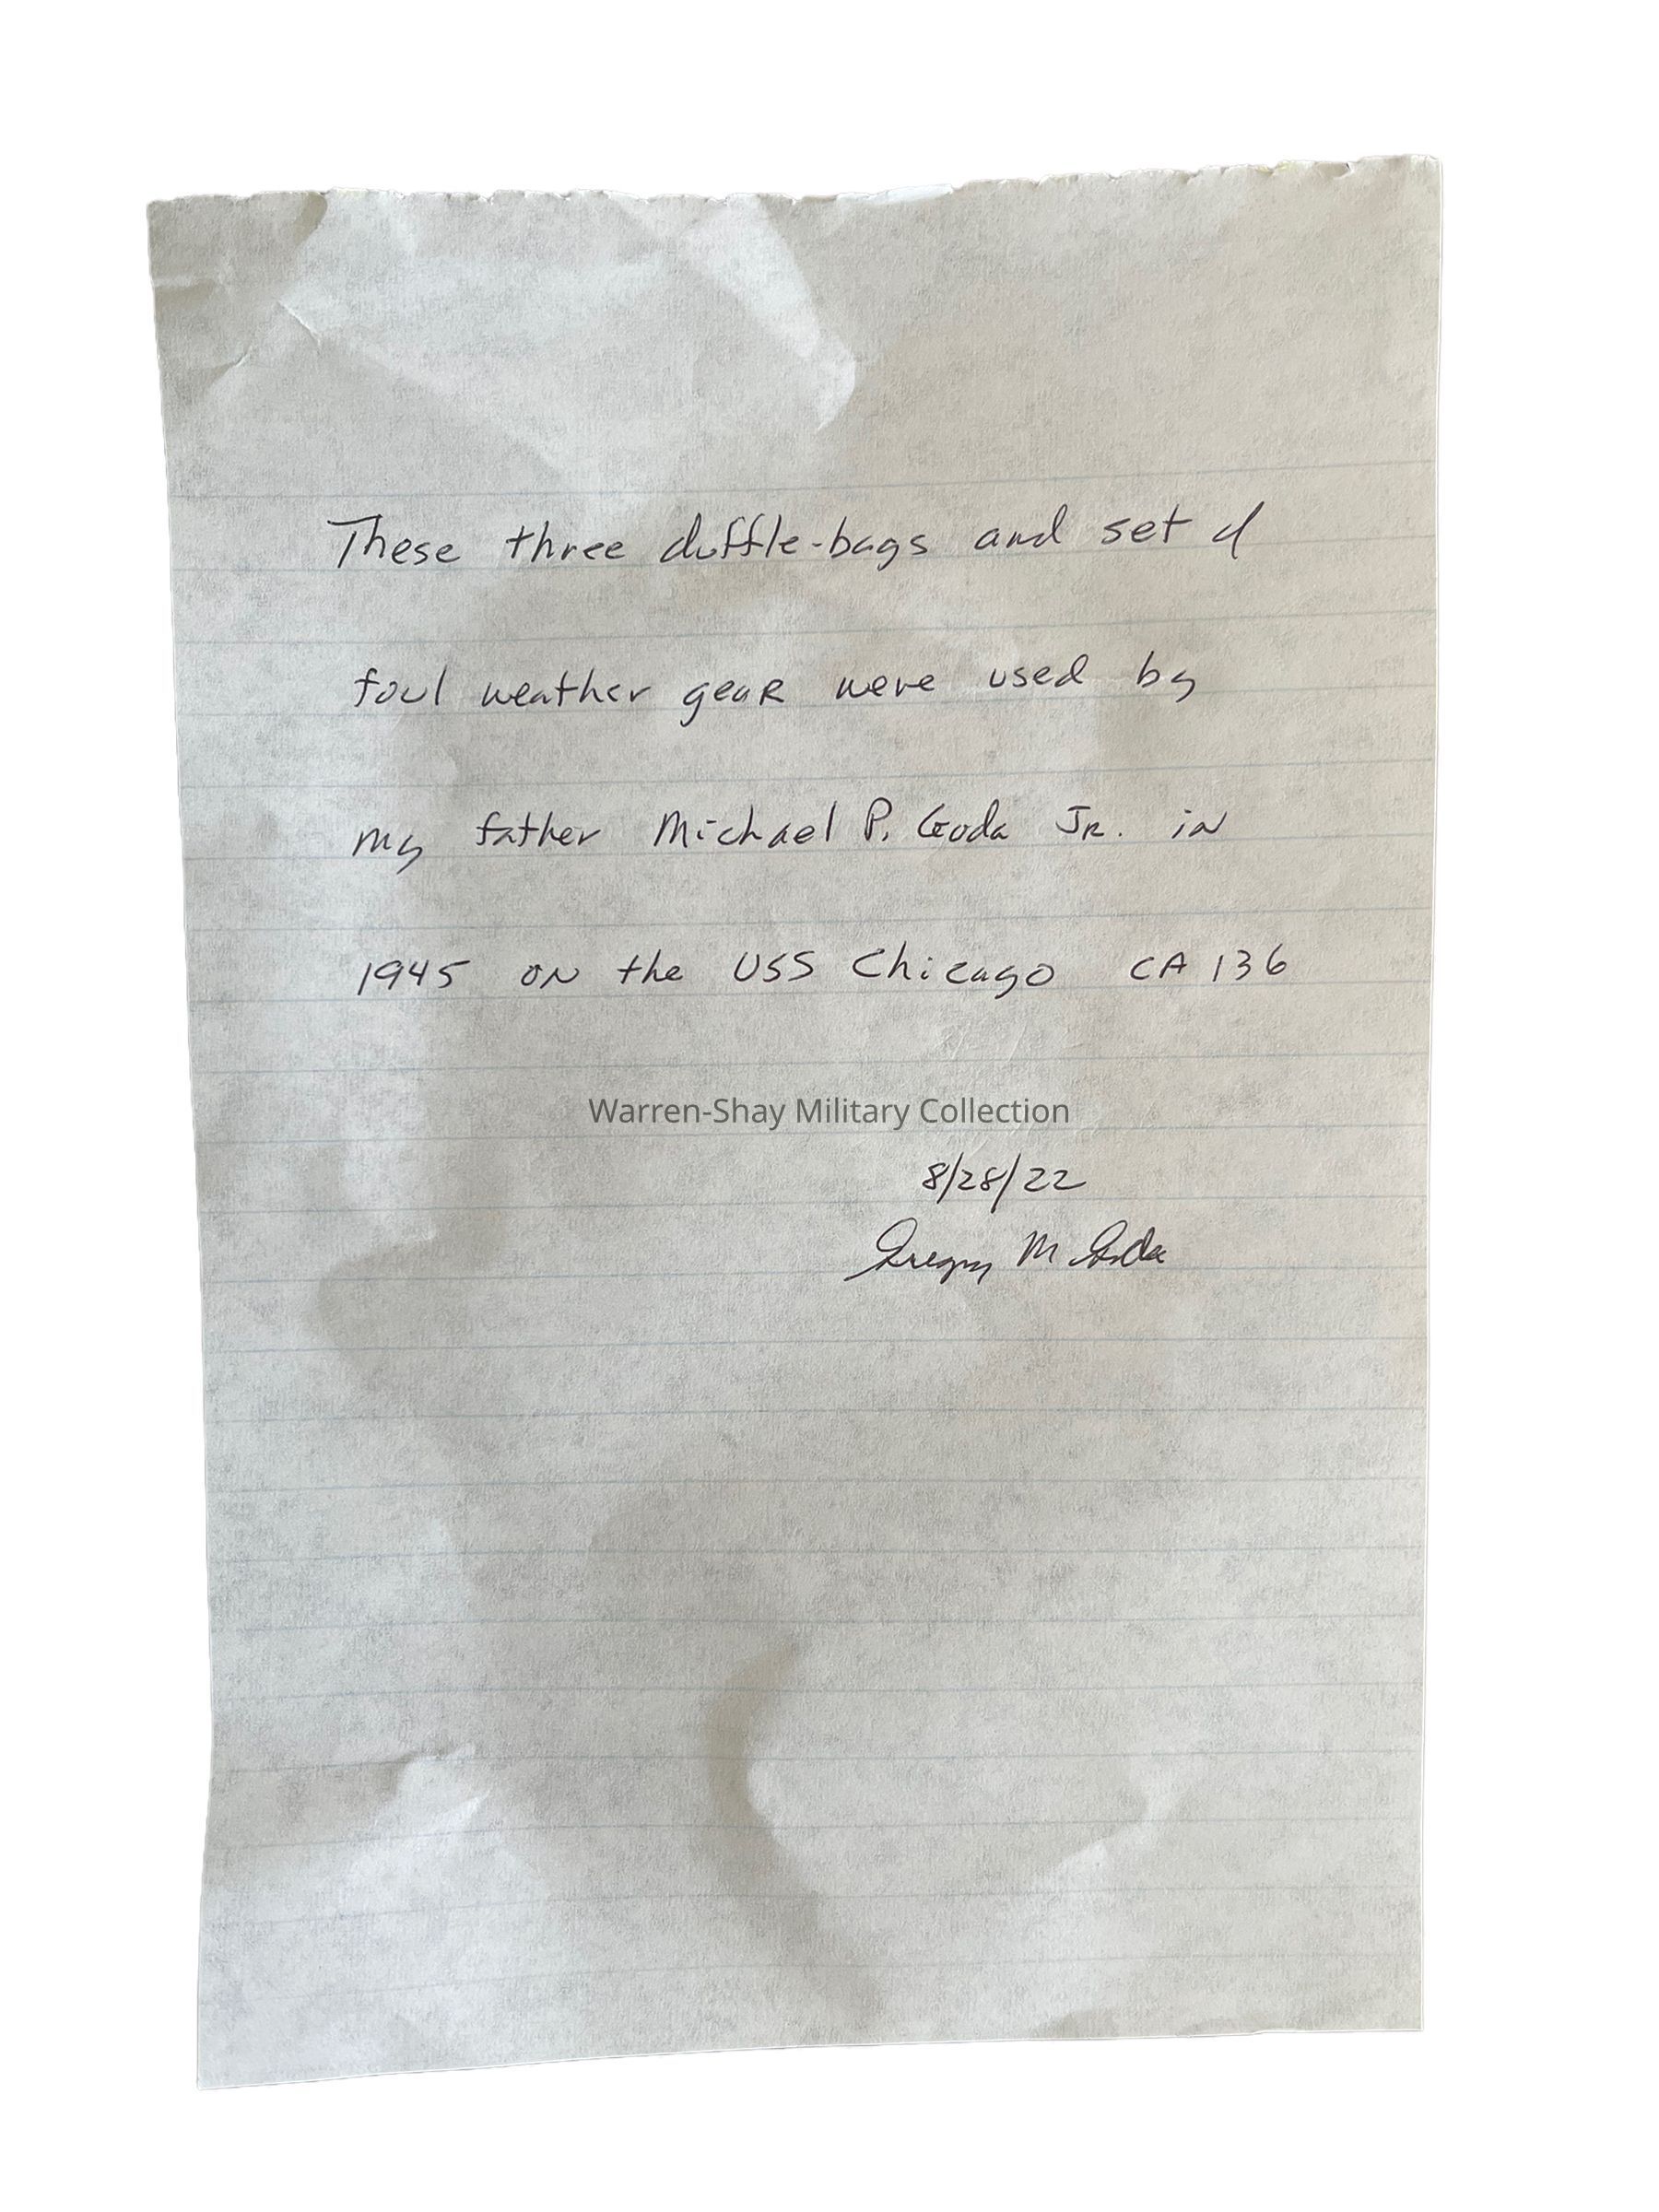 These three duffle-bags and set of
foul weather gear were used by
my father Michael P. Goda Jr. in
1945 on the USS Chicago CA 136
Warren-Shay Military Collection
8/28/22
Gregory M Goda